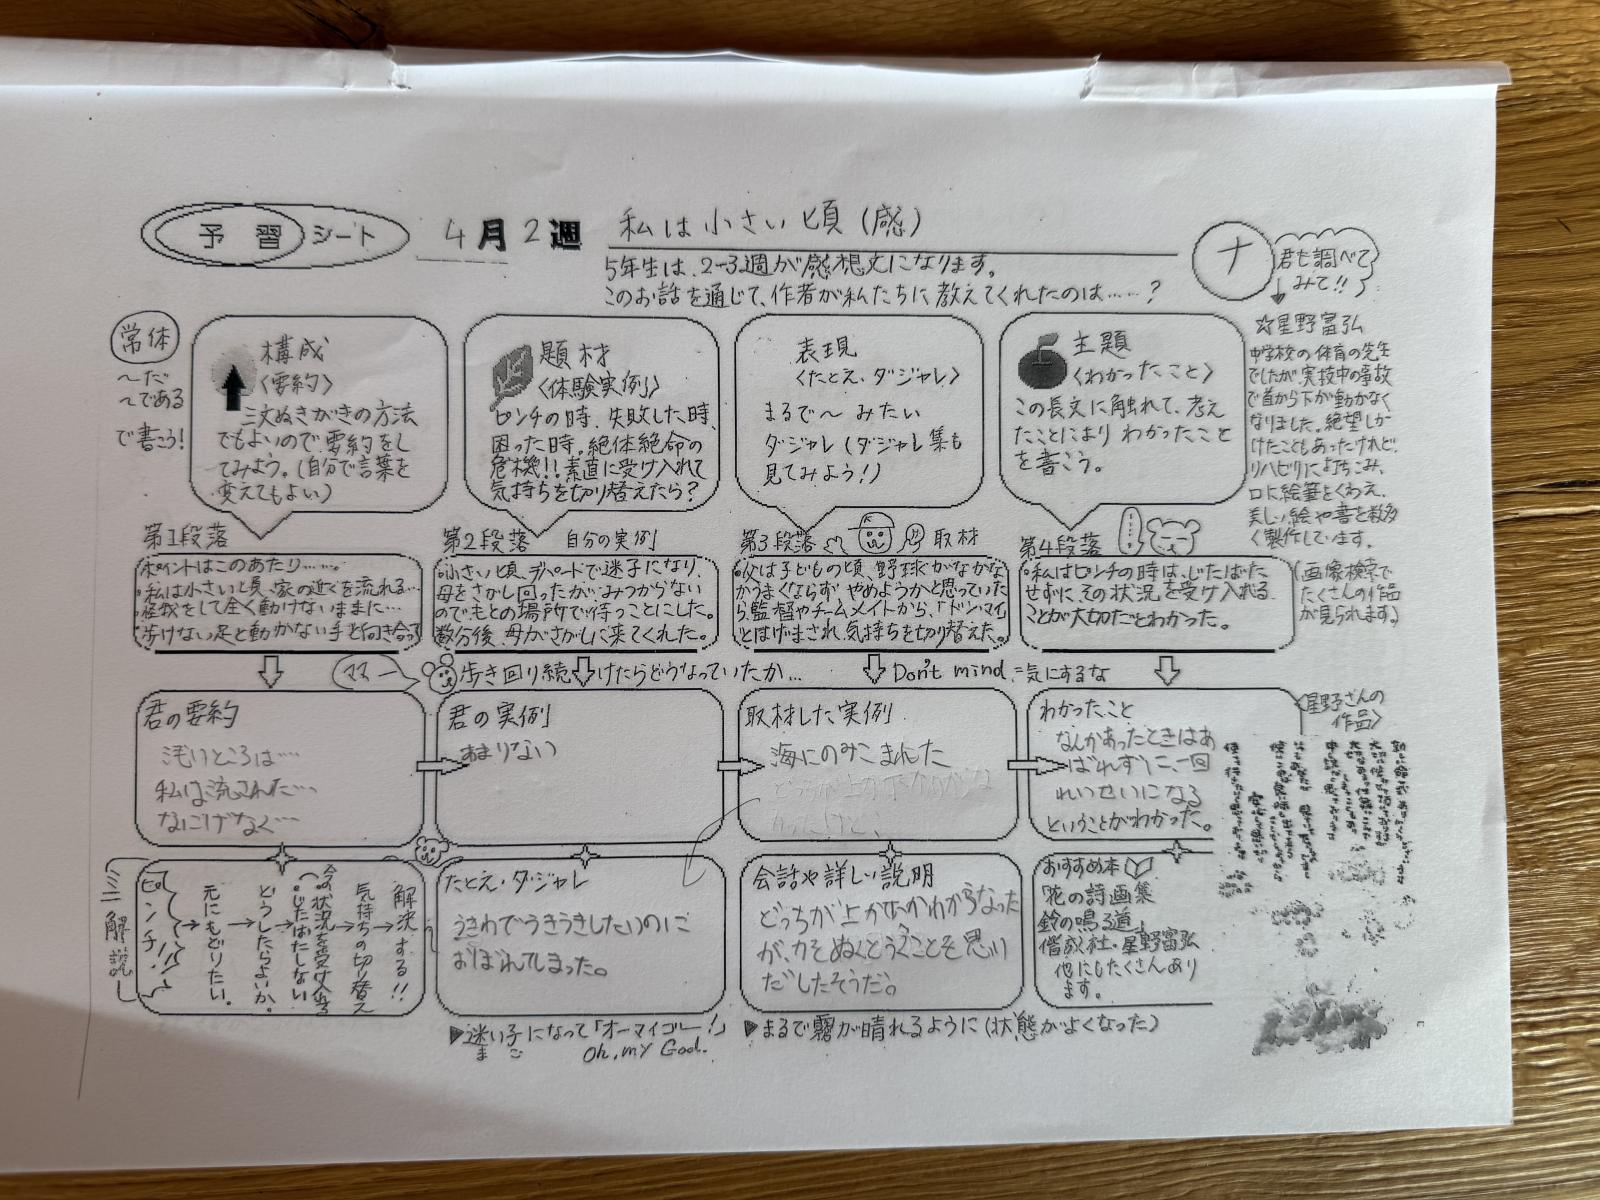 予習シート
4月2週
私は小さい頃(感)
5年生は、2-3週が感想文になります。
このお話を通じて、作者が私たちに教えてくれたのは……?
ナ
君も調べて
みて!!
常体
〜だ
〜である
で書こう!
構成
〈要約〉
三文ぬきがきの方法
でもよいので、要約をし
てみよう。(自分で言葉を
変えてもよい)
題材
〈体験実例〉
ピンチの時、失敗した時、
困った時。絶体絶命の
危機!!素直に受け入れて
気持ちを切り替えたら?
表現
〈たとえ・ダジャレ〉
まるで〜みたい
ダジャレ(ダジャレ集も
見てみよう!)
主題
〈わかったこと〉
この長文に触れて、考え
たことにより わかったこと
を書こう。
☆星野富弘
中学校の体育の先生
でしたが、実技中の事故
で首から下が動かなく
なりました。絶望しか
けたこともあったけれど、
リハビリに打ちこみ、
口に絵筆をくわえ、
美しい絵や書を数多
く製作しています。
(画像検索で
たくさんの作品
が見られます。)
第1段落
ポイントはこのあたり……
・私は小さい頃、家の近くを流れる…
・怪我をして全く動けないままに…
・歩けない足と動かない手と向き合って
第2段落 自分の実例
・小さい頃、デパートで迷子になり、
母をさがし回ったが、みつからない
のでもとの場所で待つことにした。
数分後、母がさがしに来てくれた。
第3段落 取材
・父は子どもの頃、野球がなかな
かうまくならず、やめようかと思っていた
ら監督やチームメイトから、「ドンマイ」
とはげまされ、気持ちを切り替えた。
第4段落
・私はピンチの時は、じたばた
せずに、その状況を受け入れる
ことが大切だとわかった。
ママー
歩き回り続けたらどうなっていたか…
Don't mind.=気にするな
君の要約
浅いところは…
私は流された…
なにげなく…
君の実例
あまりない
取材した実例
海にのみこまれた
わかったこと
なんかあったときはあ
ばれずに、一回
れいせいになる
ということがわかった。
〈星野さんの
作品〉
解説
ピンチ!!!
元にもどりたい。
どうしたらよいか。
じたばたしない
今の状況を受け入れる
気持ちの切り替え
解決する!!
たとえ・ダジャレ
うきわでうきうきしたいのに
おぼれてしまった。
会話や詳しい説明
どっちが上か下かわからなった
が、力をぬくとうくことを思い
だしたそうだ。
おすすめ本
『花の詩画集
鈴の鳴る道』
偕成社・星野富弘
他にもたくさんあり
ます。
▶迷い子になって「オーマイゴー!」
まご
Oh, my God.
▶まるで霧が晴れるように(状態がよくなった)